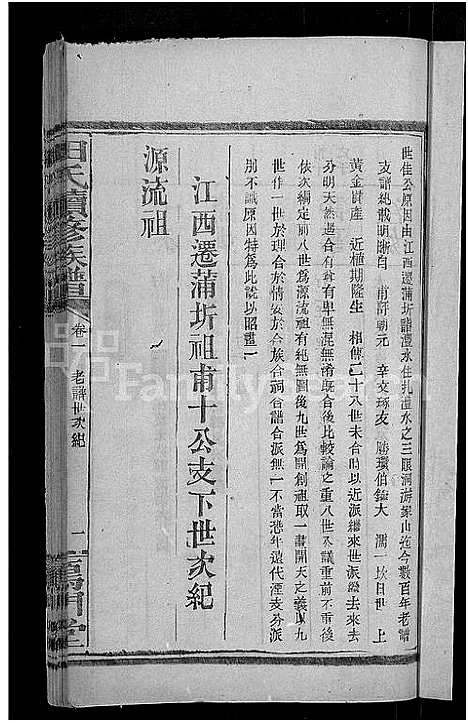 世佳公原因由江西遷蒲圻諸澧水住扎澧水之三眼洞游家山迄今數百年老譜
支譜絶裁明晰自 甫訢朝元 辛文琢友 勝瓊伯錦大 濡一坎目世 上
黃金尉產 近植期隆生 相傳二十八世未合時以近派繼來世派後去來
分明天然適合有與無混無淆既合後比較論之重八世久議重前不重後
依次編定前八世為源流祖有絶無圖後九世為開創祖取一畫開天之義以九
世作一世於理合於情安於合族合祠合譜合派無一不當恐年遠代湮支分派
別不識原因特為此說以昭畫一
江西遷蒲圻祖甫十公支下世次紀
源流祖
田氏續修族譜
卷一 老譜世次紀
一